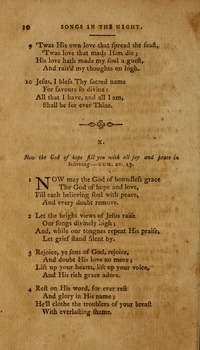 20 SONGS IN THE NIGHT.
9 'Twas His own love that spread the feast,
'Twas love that made Him die;
His love hath made my soul a guest,
And rais'd my thoughts on high.
10 Jesus, I bless Thy sacred name
For favours so divine;
All that I have, and all I am,
Shall be for ever Thine.
X.
Now the God of hope fill you with all joy and peace in
believing.—ROM. xv. 13.
1 NOW may the God of boundless grace
The God of hope and love,
Fill each believing soul with peace,
And every doubt remove.
2 Let the height views of Jesus raise
Our songs divinely high;
And, while our tongues repeat His praise,
Let grief stand silent by.
3 Rejoice, ye sons of God, rejoice,
And doubt His love no more;
Lift up your hearts, lift up your voice,
And His rich grace adore.
4 Rest on His word, for ever rest
And glory in His name;
He'll clothe the troubles of your breast
With everlasting shame.